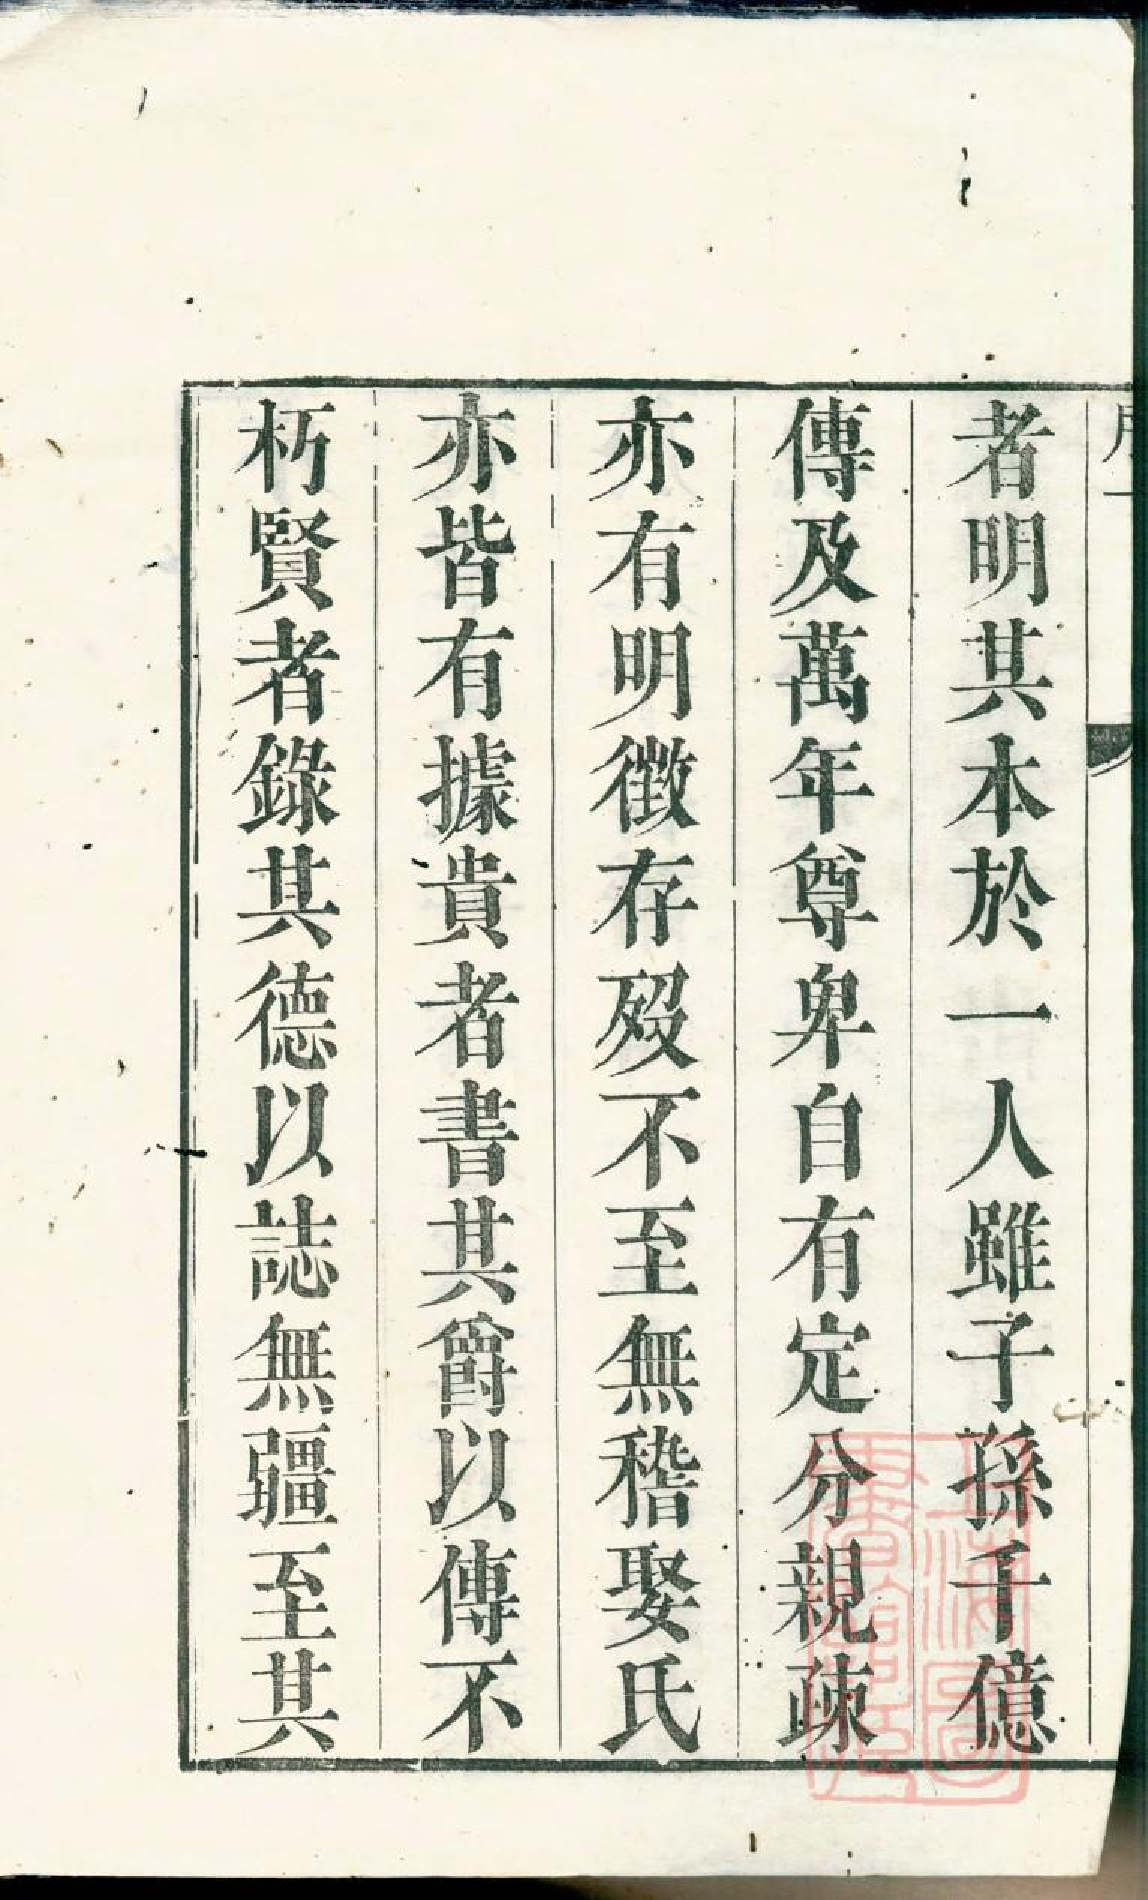 者明其本於一人雖子孫千億
傳及萬年尊卑自有定分親疎
亦有明徵存歿不至無稽娶氏
亦皆有據貴者書其爵以傳不
朽賢者錄其德以誌無疆至其
上海圖書館藏